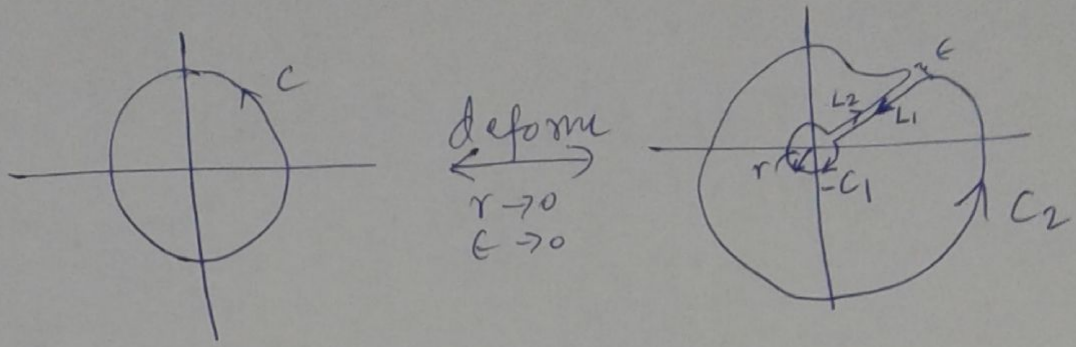 C
deforme
r→0
ϵ→0
ϵ
L2
L1
r
-C1
C2